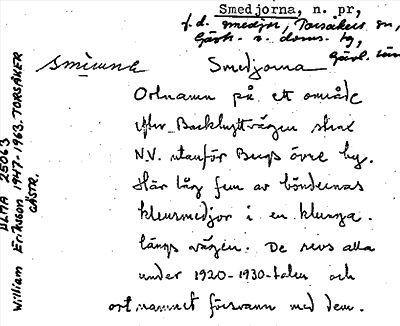 Smedjorna, n. pr,
f.d. smedjor, Torsåkers sn,
Gästr. v. doms. bg,
Gävl. län
smiwna Smedjorna
Ortnamn på ett område
efter Backhyttvägen strax
N.V. utanför Bergs övre by.
Här låg fem av böndernas
klensmedjor i en klunga
längs vägen. De revs alla
under 1920-1930-talen och
ortnamnet försvann med dem.
ULMA 25063
William Eriksson 1947-1963. TORSÅKER
GÄSTR.